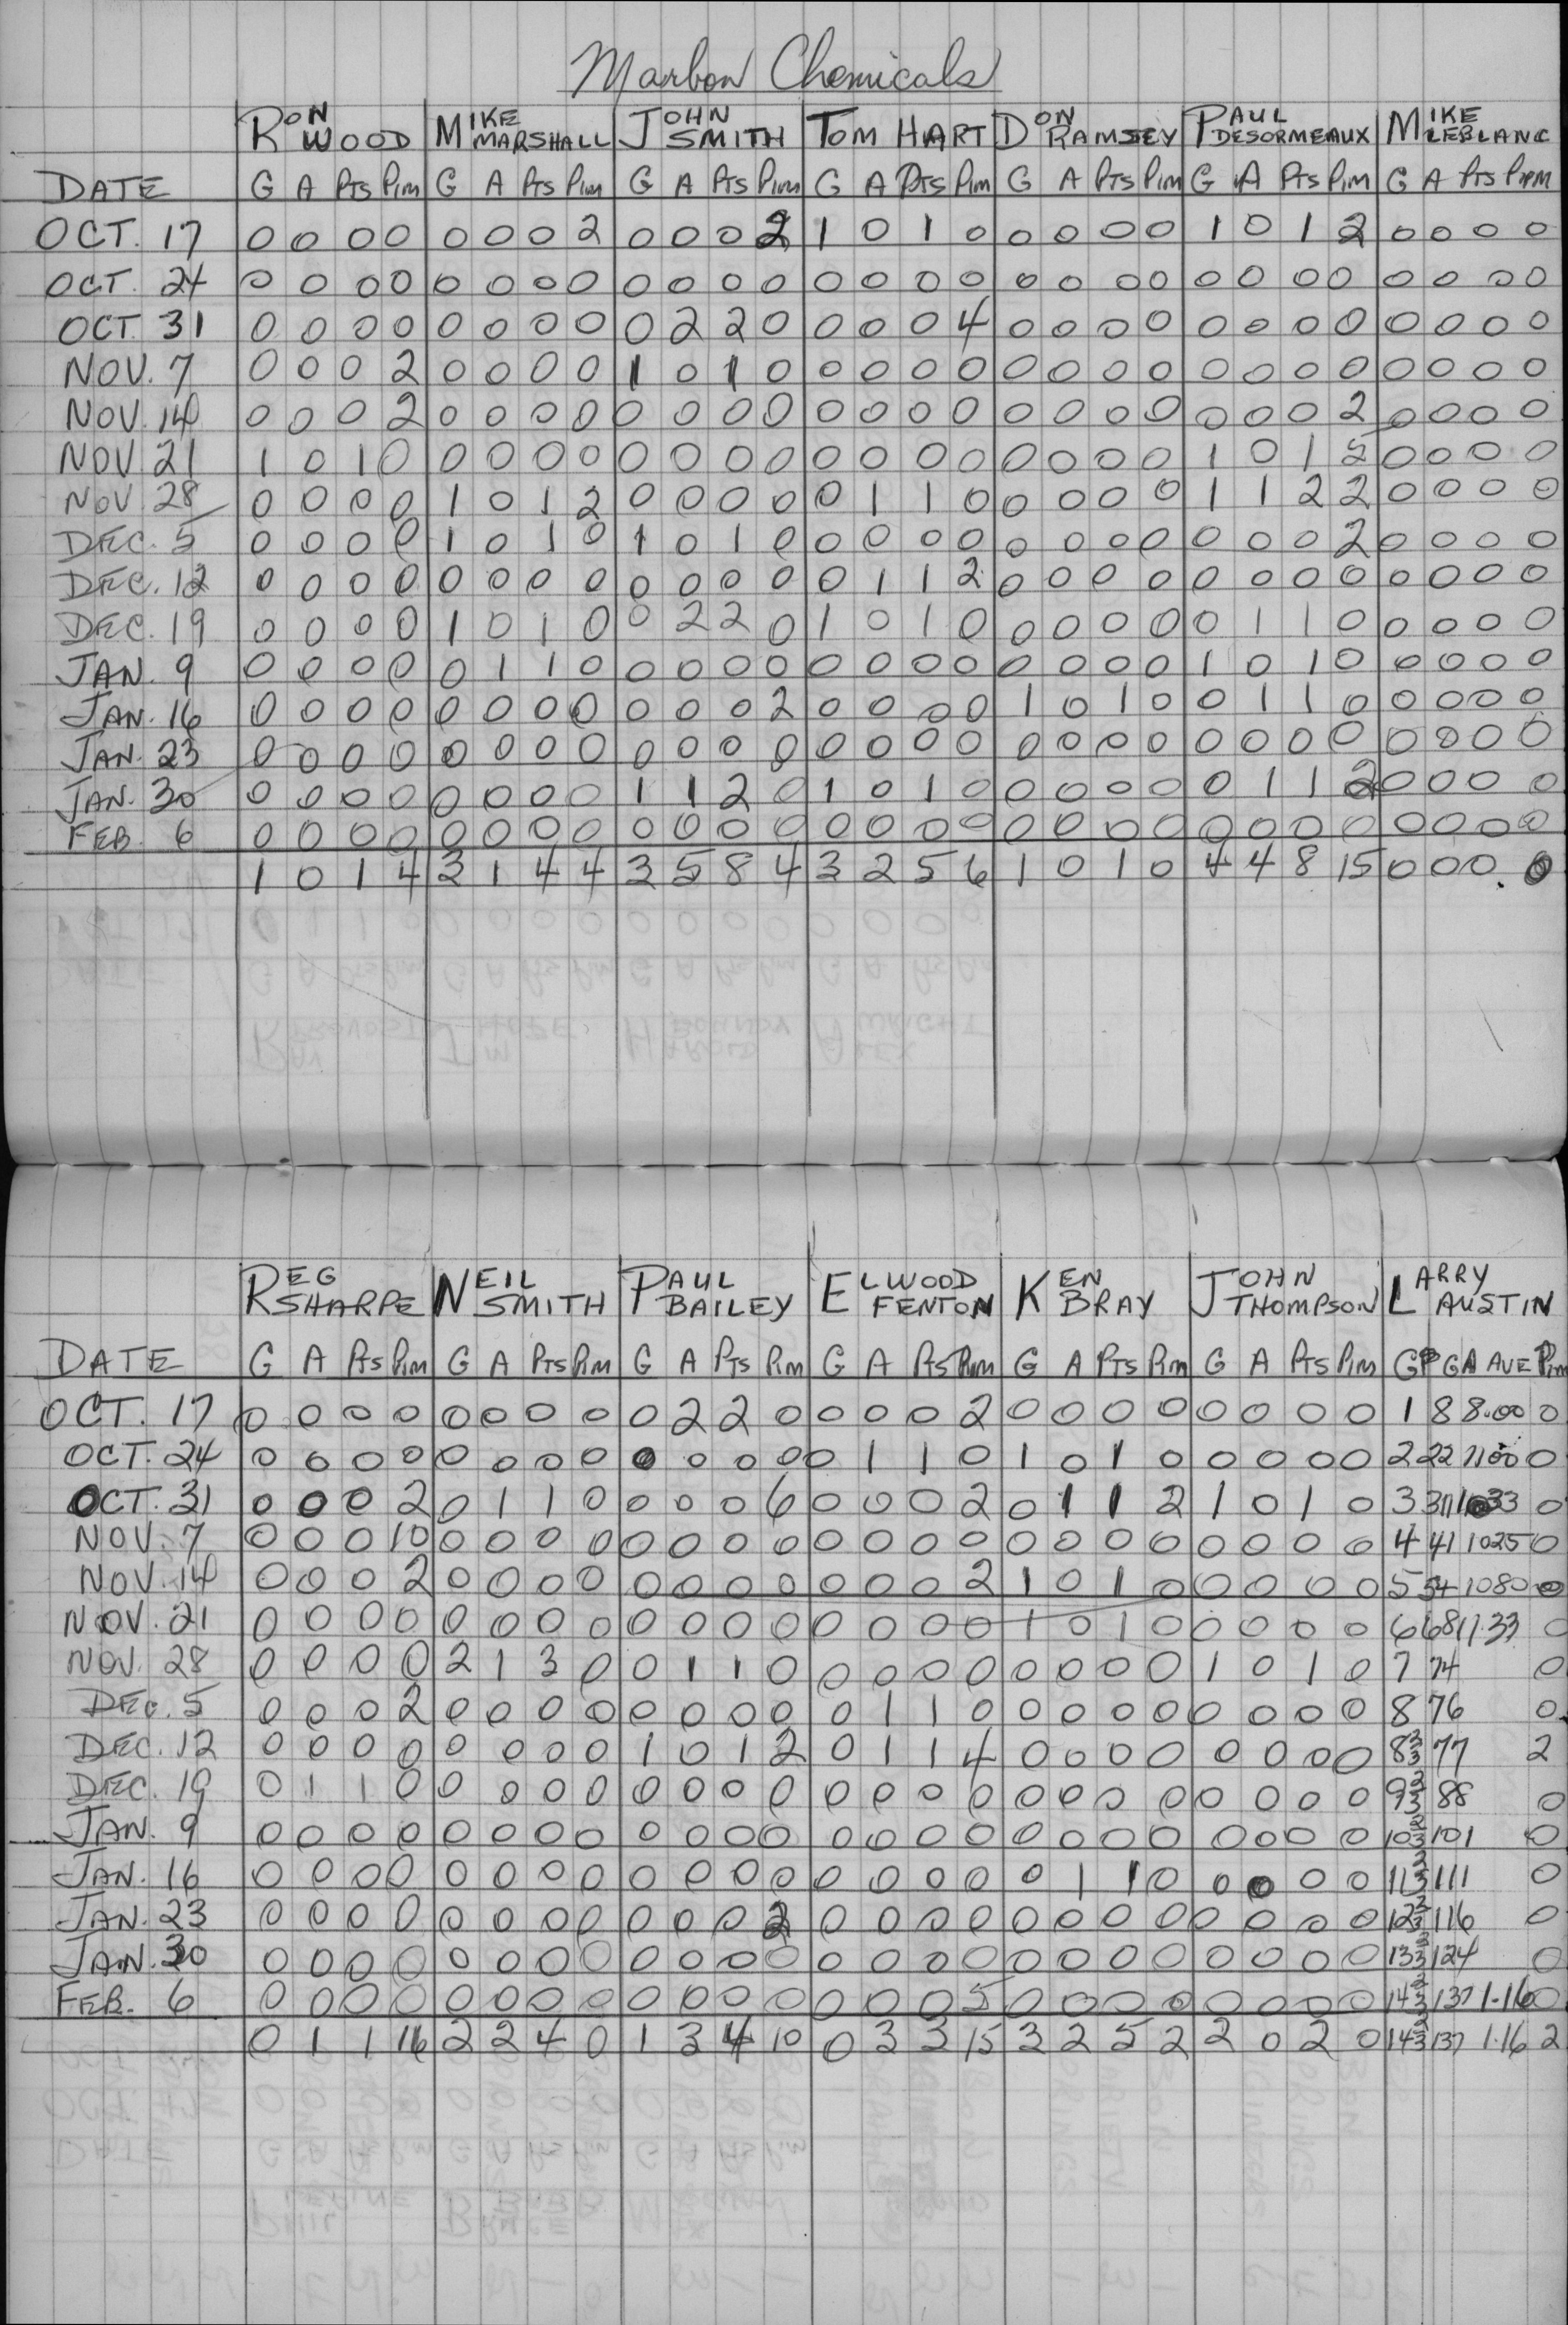 Marbon Chemicals
RON WOOD MIKE MARSHALL JOHN SMITH TOM HART DON RAMSEY PAUL DESORMEAUX MIKE LEBLANC
DATE G A Pts Pim G A Pts Pim G A Pts Pim G A Pts Pim G A Pts Pim G A Pts Pim G A Pts Pim
OCT. 17 0 0 0 0 0 0 0 2 0 0 0 2 1 0 1 0 0 0 0 0 1 0 1 2 0 0 0 0
OCT. 24 0 0 0 0 0 0 0 0 0 0 0 0 0 0 0 0 0 0 0 0 0 0 0 0 0 0 0 0
OCT. 31 0 0 0 0 0 0 0 0 0 2 2 0 0 0 0 4 0 0 0 0 0 0 0 0 0 0 0 0
NOV. 7 0 0 0 2 0 0 0 0 1 0 1 0 0 0 0 0 0 0 0 0 0 0 0 0 0 0 0 0
NOV. 14 0 0 0 2 0 0 0 0 0 0 0 0 0 0 0 0 0 0 0 0 0 0 0 2 0 0 0 0
NOV 21 1 0 1 0 0 0 0 0 0 0 0 0 0 0 0 0 0 0 0 0 1 0 1 5 0 0 0 0
NOV 28 0 0 0 0 1 0 1 2 0 0 0 0 0 1 1 0 0 0 0 0 1 1 2 2 0 0 0 0
DEC. 5 0 0 0 0 1 0 1 0 1 0 1 0 0 0 0 0 0 0 0 0 0 0 0 2 0 0 0 0
DEC. 12 0 0 0 0 0 0 0 0 0 0 0 0 0 1 1 2 0 0 0 0 0 0 0 0 0 0 0 0
DEC. 19 0 0 0 0 1 0 1 0 0 2 2 0 1 0 1 0 0 0 0 0 0 1 1 0 0 0 0 0
JAN. 9 0 0 0 0 0 1 1 0 0 0 0 0 0 0 0 0 0 0 0 0 1 0 1 0 0 0 0 0
JAN. 16 0 0 0 0 0 0 0 0 0 0 0 2 0 0 0 0 1 0 1 0 0 1 1 0 0 0 0 0
JAN. 23 0 0 0 0 0 0 0 0 0 0 0 0 0 0 0 0 0 0 0 0 0 0 0 0 0 0 0 0
JAN. 30 0 0 0 0 0 0 0 0 1 1 2 0 1 0 1 0 0 0 0 0 0 1 1 2 0 0 0 0
FEB. 6 0 0 0 0 0 0 0 0 0 0 0 0 0 0 0 0 0 0 0 0 0 0 0 0 0 0 0 0
1 0 1 4 3 1 4 4 3 5 8 4 3 2 5 6 1 0 1 0 4 4 8 15 0 0 0 0
REG SHARPE NEIL SMITH PAUL BAILEY ELWOOD FENTON KEN BRAY JOHN THOMPSON LARRY AUSTIN
DATE G A Pts Pim G A Pts Pim G A Pts Pim G A Pts Pim G A Pts Pim G A Pts Pim GP GA AVE Pim
OCT. 17 0 0 0 0 0 0 0 0 0 2 2 0 0 0 0 2 0 0 0 0 0 0 0 0 1 8 8.00 0
OCT. 24 0 0 0 0 0 0 0 0 0 0 0 0 0 1 1 0 1 0 1 0 0 0 0 0 2 22 1100 0
OCT. 31 0 0 0 2 0 1 1 0 0 0 0 6 0 0 0 2 0 1 1 2 1 0 1 0 3 31 0
NOV. 7 0 0 0 10 0 0 0 0 0 0 0 0 0 0 0 0 0 0 0 0 0 0 0 0 4 41 1025 0
NOV. 14 0 0 0 2 0 0 0 0 0 0 0 0 0 0 0 2 1 0 1 0 0 0 0 0 5 54 1080 0
NOV. 21 0 0 0 0 0 0 0 0 0 0 0 0 0 0 0 0 1 0 1 0 0 0 0 0 6 68 11.33 0
NOV. 28 0 0 0 0 2 1 3 0 0 1 1 0 0 0 0 0 0 0 0 0 1 0 1 0 7 74 0
DEC. 5 0 0 0 2 0 0 0 0 0 0 0 0 0 1 1 0 0 0 0 0 0 0 0 0 8 76 0
DEC. 12 0 0 0 0 0 0 0 0 1 0 1 2 0 1 1 4 0 0 0 0 0 0 0 0 8 2/3 77 2
DEC. 19 0 1 1 0 0 0 0 0 0 0 0 0 0 0 0 0 0 0 0 0 0 0 0 0 9 2/3 88 0
JAN. 9 0 0 0 0 0 0 0 0 0 0 0 0 0 0 0 0 0 0 0 0 0 0 0 0 10 2/3 101 0
JAN. 16 0 0 0 0 0 0 0 0 0 0 0 0 0 0 0 0 0 1 1 0 0 0 0 0 11 2/3 111 0
JAN. 23 0 0 0 0 0 0 0 0 0 0 0 2 0 0 0 0 0 0 0 0 0 0 0 0 12 2/3 116 0
JAN. 30 0 0 0 0 0 0 0 0 0 0 0 0 0 0 0 0 0 0 0 0 0 0 0 0 13 2/3 124 0
FEB. 6 0 0 0 0 0 0 0 0 0 0 0 0 0 0 0 5 0 0 0 0 0 0 0 0 14 2/3 137 1.16 0
0 1 1 16 2 2 4 0 1 3 4 10 0 3 3 15 3 2 5 2 2 0 2 0 14 2/3 137 1.16 2